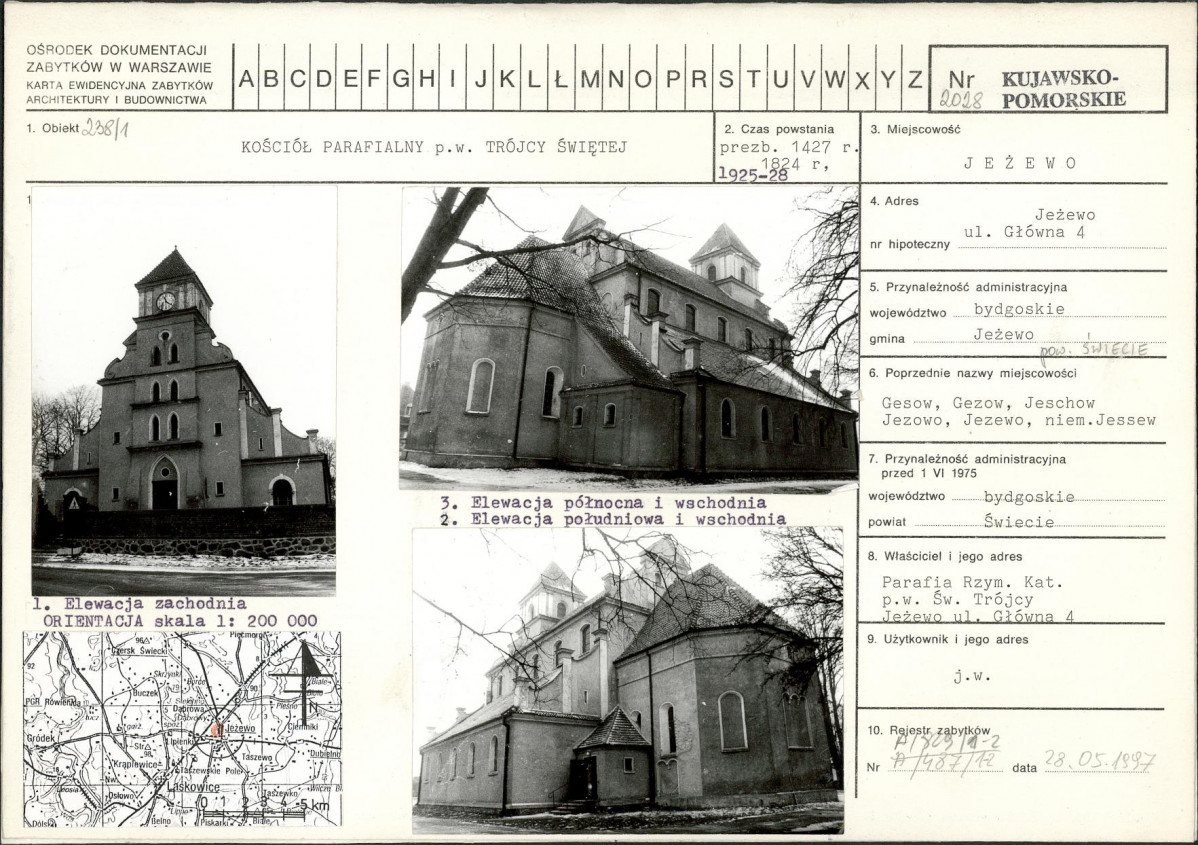 OŚRODEK DOKUMENTACJI
ZABYTKÓW W WARSZAWIE
KARTA EWIDENCYJNA ZABYTKÓW
ARCHITEKTURY I BUDOWNICTWA
A B C D E F G H I J K L Ł M N O P R S T U V W X Y Z
Nr
2028
KUJAWSKO-
POMORSKIE
1. Obiekt 238/1
KOŚCIÓŁ PARAFIALNY p.w. TRÓJCY ŚWIĘTEJ
2. Czas powstania
prezb. 1427 r.
1824 r,
1925-28
3. Miejscowość
JEŻEWO
4. Adres
Jeżewo
ul. Główna 4
nr hipoteczny
5. Przynależność administracyjna
województwo bydgoskie
gmina Jeżewo
pow. ŚWIECIE
6. Poprzednie nazwy miejscowości
Gesow, Gezow, Jeschow
Jezowo, Jezewo, niem.Jessew
7. Przynależność administracyjna
przed 1 VI 1975
województwo bydgoskie
powiat Świecie
8. Właściciel i jego adres
Parafia Rzym. Kat.
p.w. Św. Trójcy
Jeżewo ul. Główna 4
9. Użytkownik i jego adres
j.w.
10. Rejestr zabytków
Nr A/487/12 data 28.05.1997
3. Elewacja północna i wschodnia
2. Elewacja południowa i wschodnia
1. Elewacja zachodnia
ORIENTACJA skala 1: 200 000
Czersk Świecki
Skrzynki
Buczek
PGR Rówienica
Dąbrowa
Gródek
Lipienki
Jeżewo
Ciemniki
Dubielno
Krąplewice
Taszewo
Taszewskie Pole
Laskowice
Taszewko
Osłowo
Belno
Piskarki
N
0 1 2 3 4 5 km